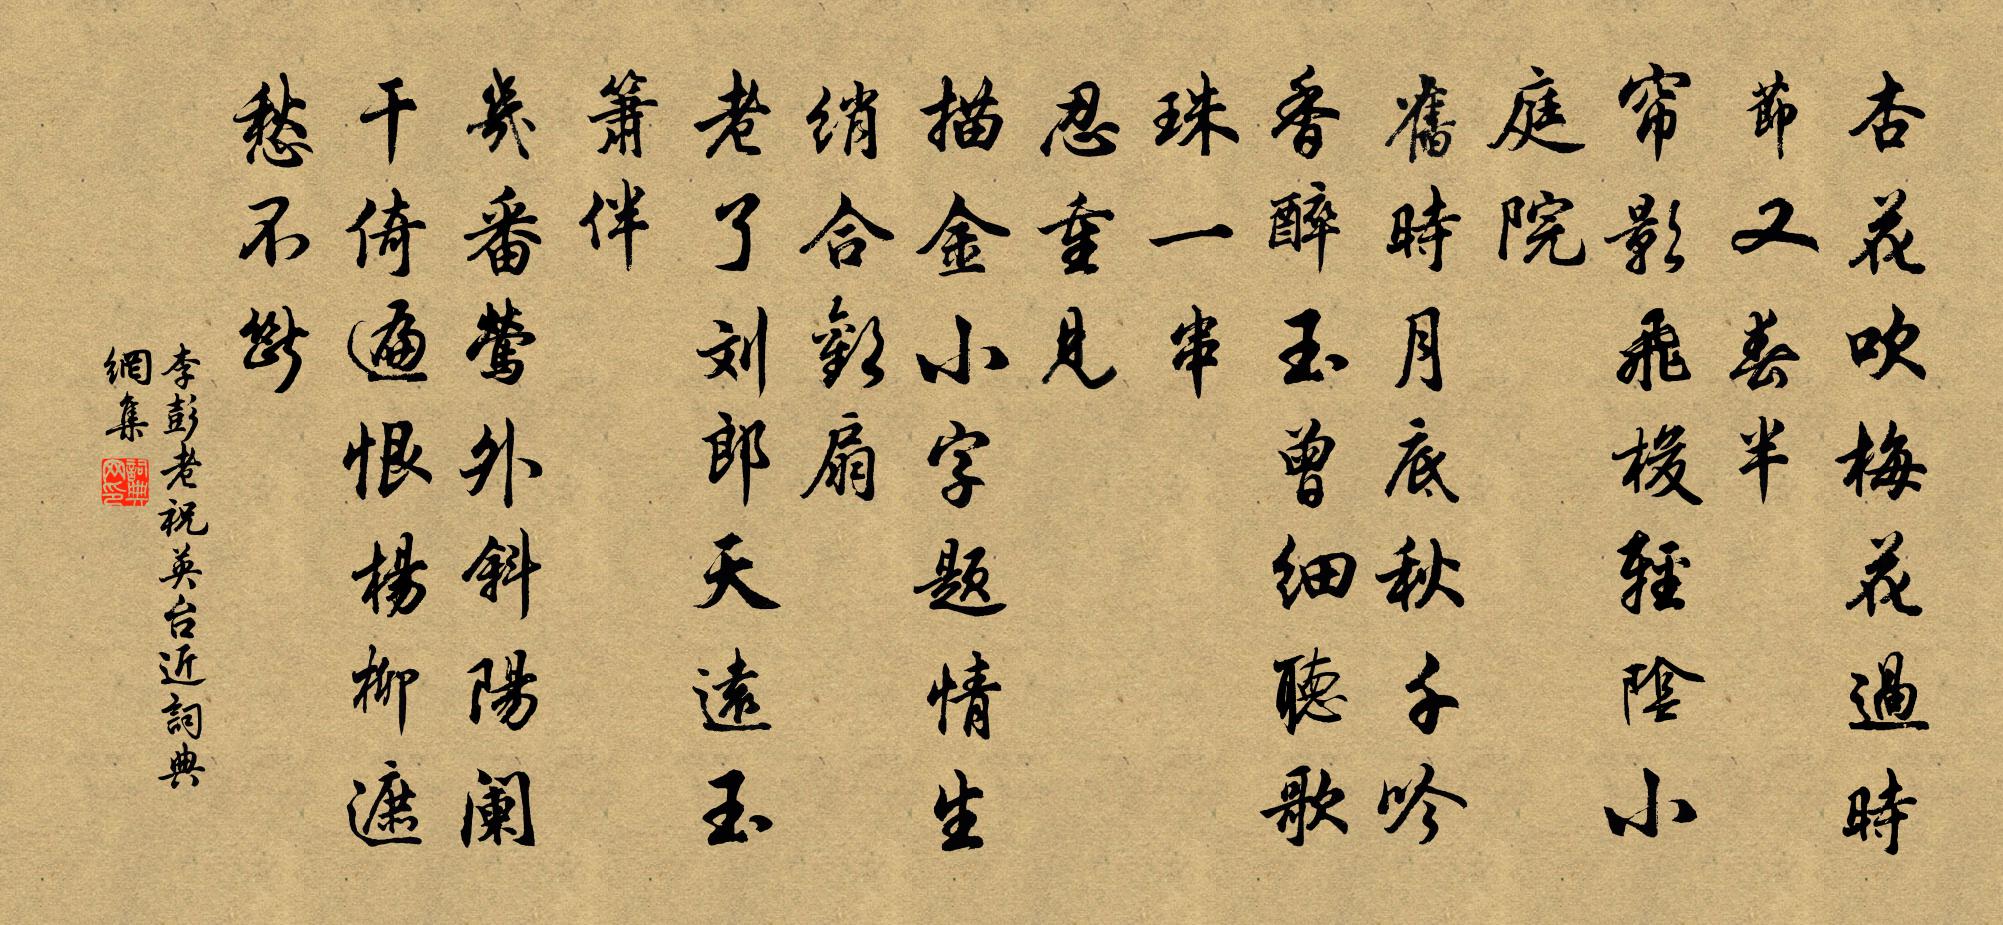 杏花吹梅花過時
節又春半
帘影飛梭輕陰小
庭院
舊時月底秋千吟
香醉玉曾細聽歌
珠一串
忍重見
描金小字题情生
綃合歡扇
老了刘郎天遠玉
簫伴
幾番鶯外斜陽阑
干倚遍恨楊柳遮
愁不斷
李彭老祝英台近詞典
網集
詞典网印